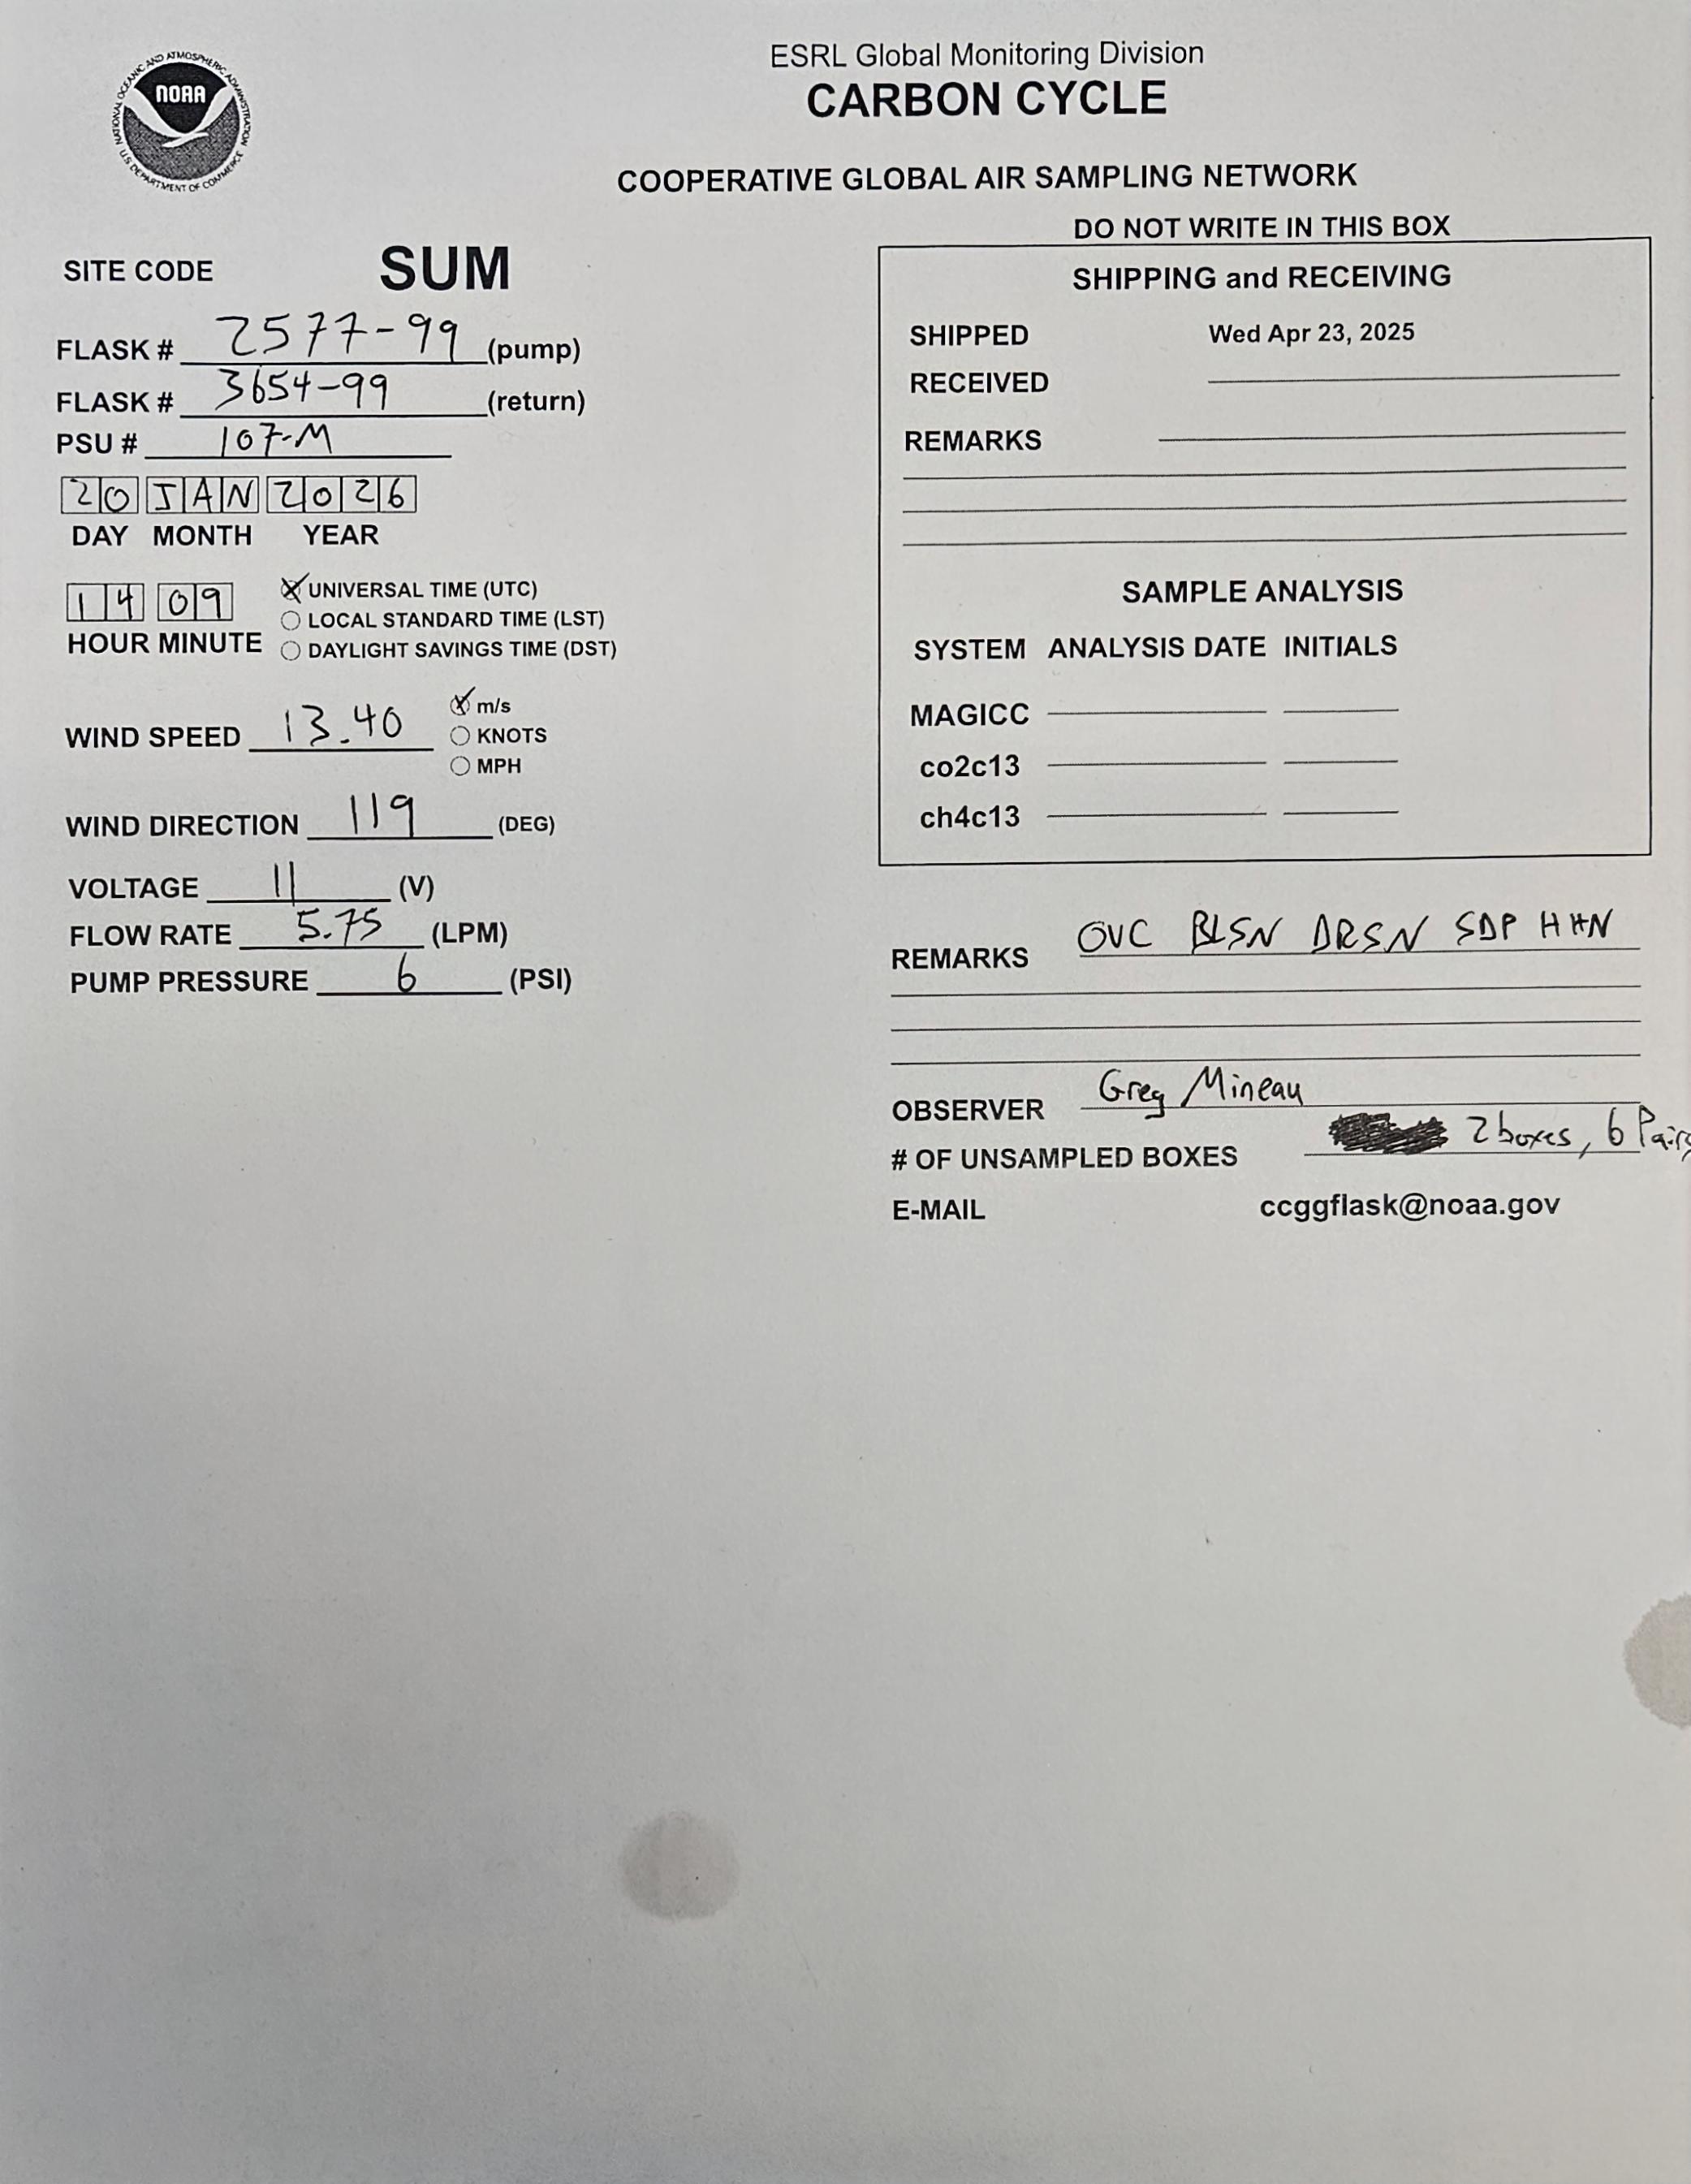 NATIONAL OCEANIC AND ATMOSPHERIC ADMINISTRATION
U.S. DEPARTMENT OF COMMERCE
NOAA
ESRL Global Monitoring Division
CARBON CYCLE
COOPERATIVE GLOBAL AIR SAMPLING NETWORK
SITE CODE SUM
FLASK # 2577-99 (pump)
FLASK # 3654-99 (return)
PSU # 107-M
20 JAN 2026
DAY MONTH YEAR
14 09
HOUR MINUTE
UNIVERSAL TIME (UTC)
LOCAL STANDARD TIME (LST)
DAYLIGHT SAVINGS TIME (DST)
WIND SPEED 13.40
m/s
KNOTS
MPH
WIND DIRECTION 119 (DEG)
VOLTAGE 11 (V)
FLOW RATE 5.75 (LPM)
PUMP PRESSURE 6 (PSI)
DO NOT WRITE IN THIS BOX
SHIPPING and RECEIVING
SHIPPED Wed Apr 23, 2025
RECEIVED
REMARKS
SAMPLE ANALYSIS
SYSTEM ANALYSIS DATE INITIALS
MAGICC
co2c13
ch4c13
REMARKS OVC BLSN DRSN SDP HHN
OBSERVER Greg Mineau
# OF UNSAMPLED BOXES 2 boxes, 6 Pairs
E-MAIL ccggflask@noaa.gov